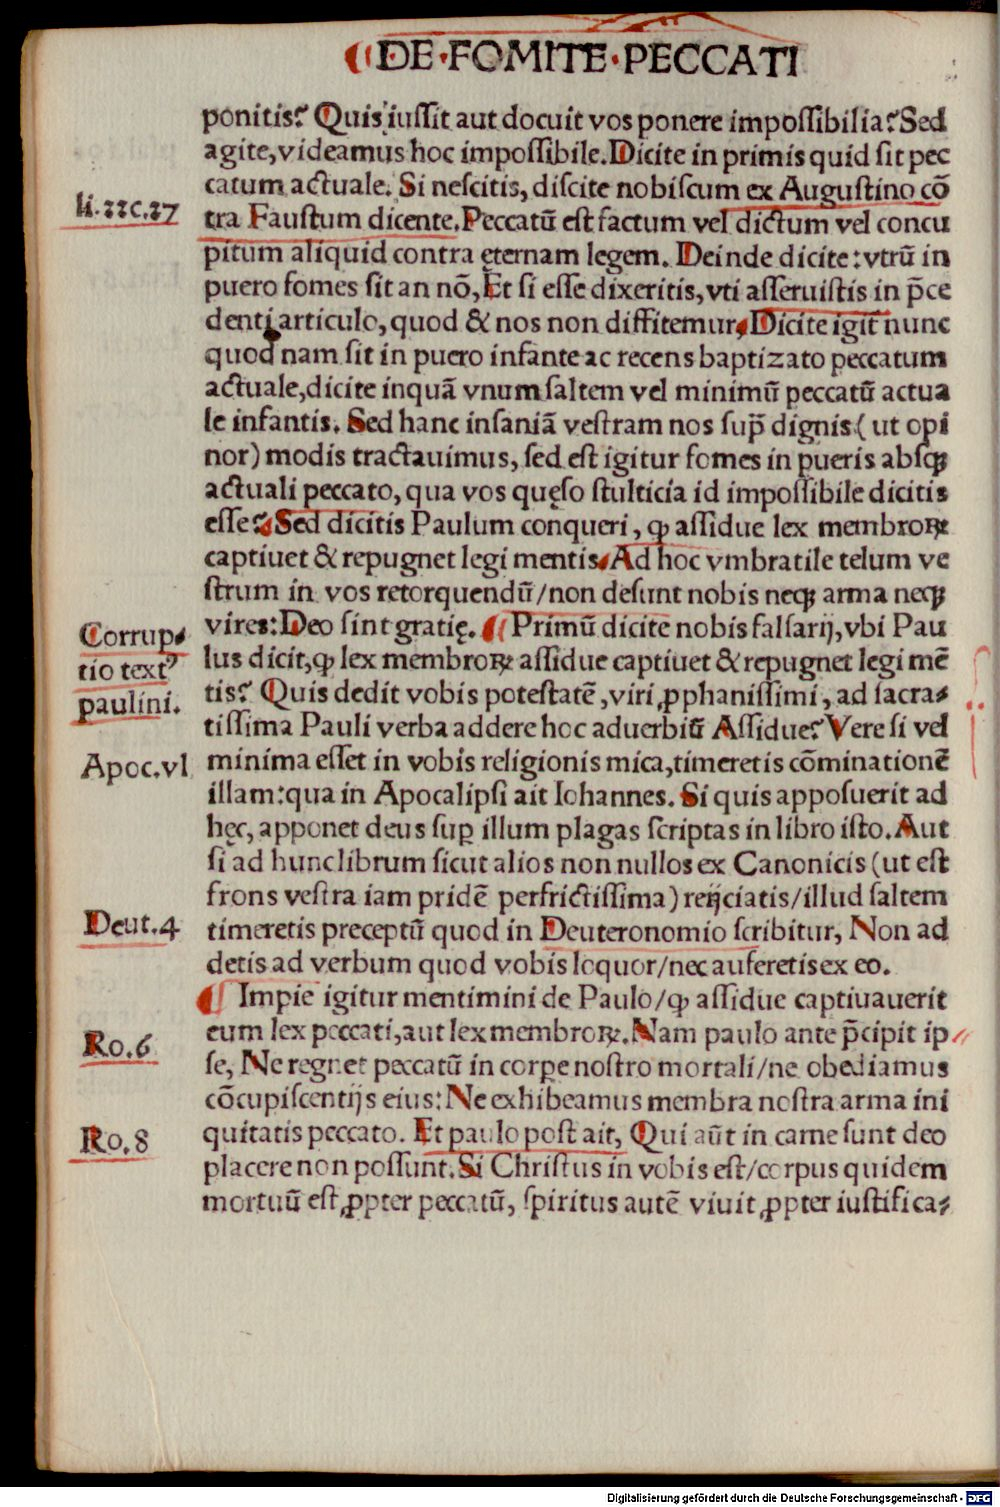 DE·FOMITE·PECCATI
ponitis? Quis iussit aut docuit vos ponere impossibilia? Sed
agite, videamus hoc impossibile. Dicite in primis quid sit pec
catum actuale. Si nescitis, discite nobiscum ex Augustino cō
li. 22c. 27
tra Faustum dicente. Peccatū est factum vel dictum vel concu
pitum aliquid contra ęternam legem. Deinde dicite: vtrū in
puero fomes sit an nō, Et si esse dixeritis, vti asseruistis in p̄ce
denti articulo, quod & nos non diffitemur, Dicite igit̄ nunc
quod nam sit in puero infante ac recens baptizato peccatum
actuale, dicite inquā vnum saltem vel minimū peccatū actua
le infantis. Sed hanc insaniā vestram nos sup̄ dignis (ut opi
nor) modis tractauimus, sed est igitur fomes in pueris absqꝫ
actuali peccato, qua vos quęso stulticia id impossibile dicitis
esse? Sed dicitis Paulum conqueri, ꝙ assidue lex membroꝝ
captiuet & repugnet legi mentis. Ad hoc vmbratile telum ve
strum in vos retorquendū/non desunt nobis neqꝫ arma neqꝫ
Corrup⸗
tio textꝰ
paulini.
vires: Deo sint gratię. Primū dicite nobis falsarij, vbi Pau
lus dicit, ꝙ lex membroꝝ assidue captiuet & repugnet legi mē
tis? Quis dedit vobis potestatē, viri ꝓphanissimi, ad sacra⸗
tissima Pauli verba addere hoc aduerbiū Assidue? Vere si vel
Apoc. vl
minima esset in vobis religionis mica, timeretis cōminationē
illam: qua in Apocalipsi ait Iohannes. Si quis apposuerit ad
hęc, apponet deus suꝑ illum plagas scriptas in libro isto. Aut
si ad hunc librum sicut alios non nullos ex Canonicis (ut est
frons vestra iam pridē perfrictissima) reijciatis/illud saltem
Deut. 4
timeretis preceptū quod in Deuteronomio scribitur, Non ad
detis ad verbum quod vobis loquor/nec auferetis ex eo.
Impie igitur mentimini de Paulo/ꝙ assidue captiuauerit
Ro. 6
eum lex peccati, aut lex membroꝝ. Nam paulo ante p̄cipit ip
se, Ne regnet peccatū in corꝑe nostro mortali/ne obediamus
cōcupiscentijs eius: Ne exhibeamus membra nostra arma ini
Ro. 8
quitatis peccato. Et paulo post ait, Qui aūt in carne sunt deo
placere non possunt. Si Christus in vobis est/corpus quidem
mortuū est ꝓpter peccatū, spiritus autē viuit ꝓpter iustifica⸗
Digitalisierung gefördert durch die Deutsche Forschungsgemeinschaft - DFG